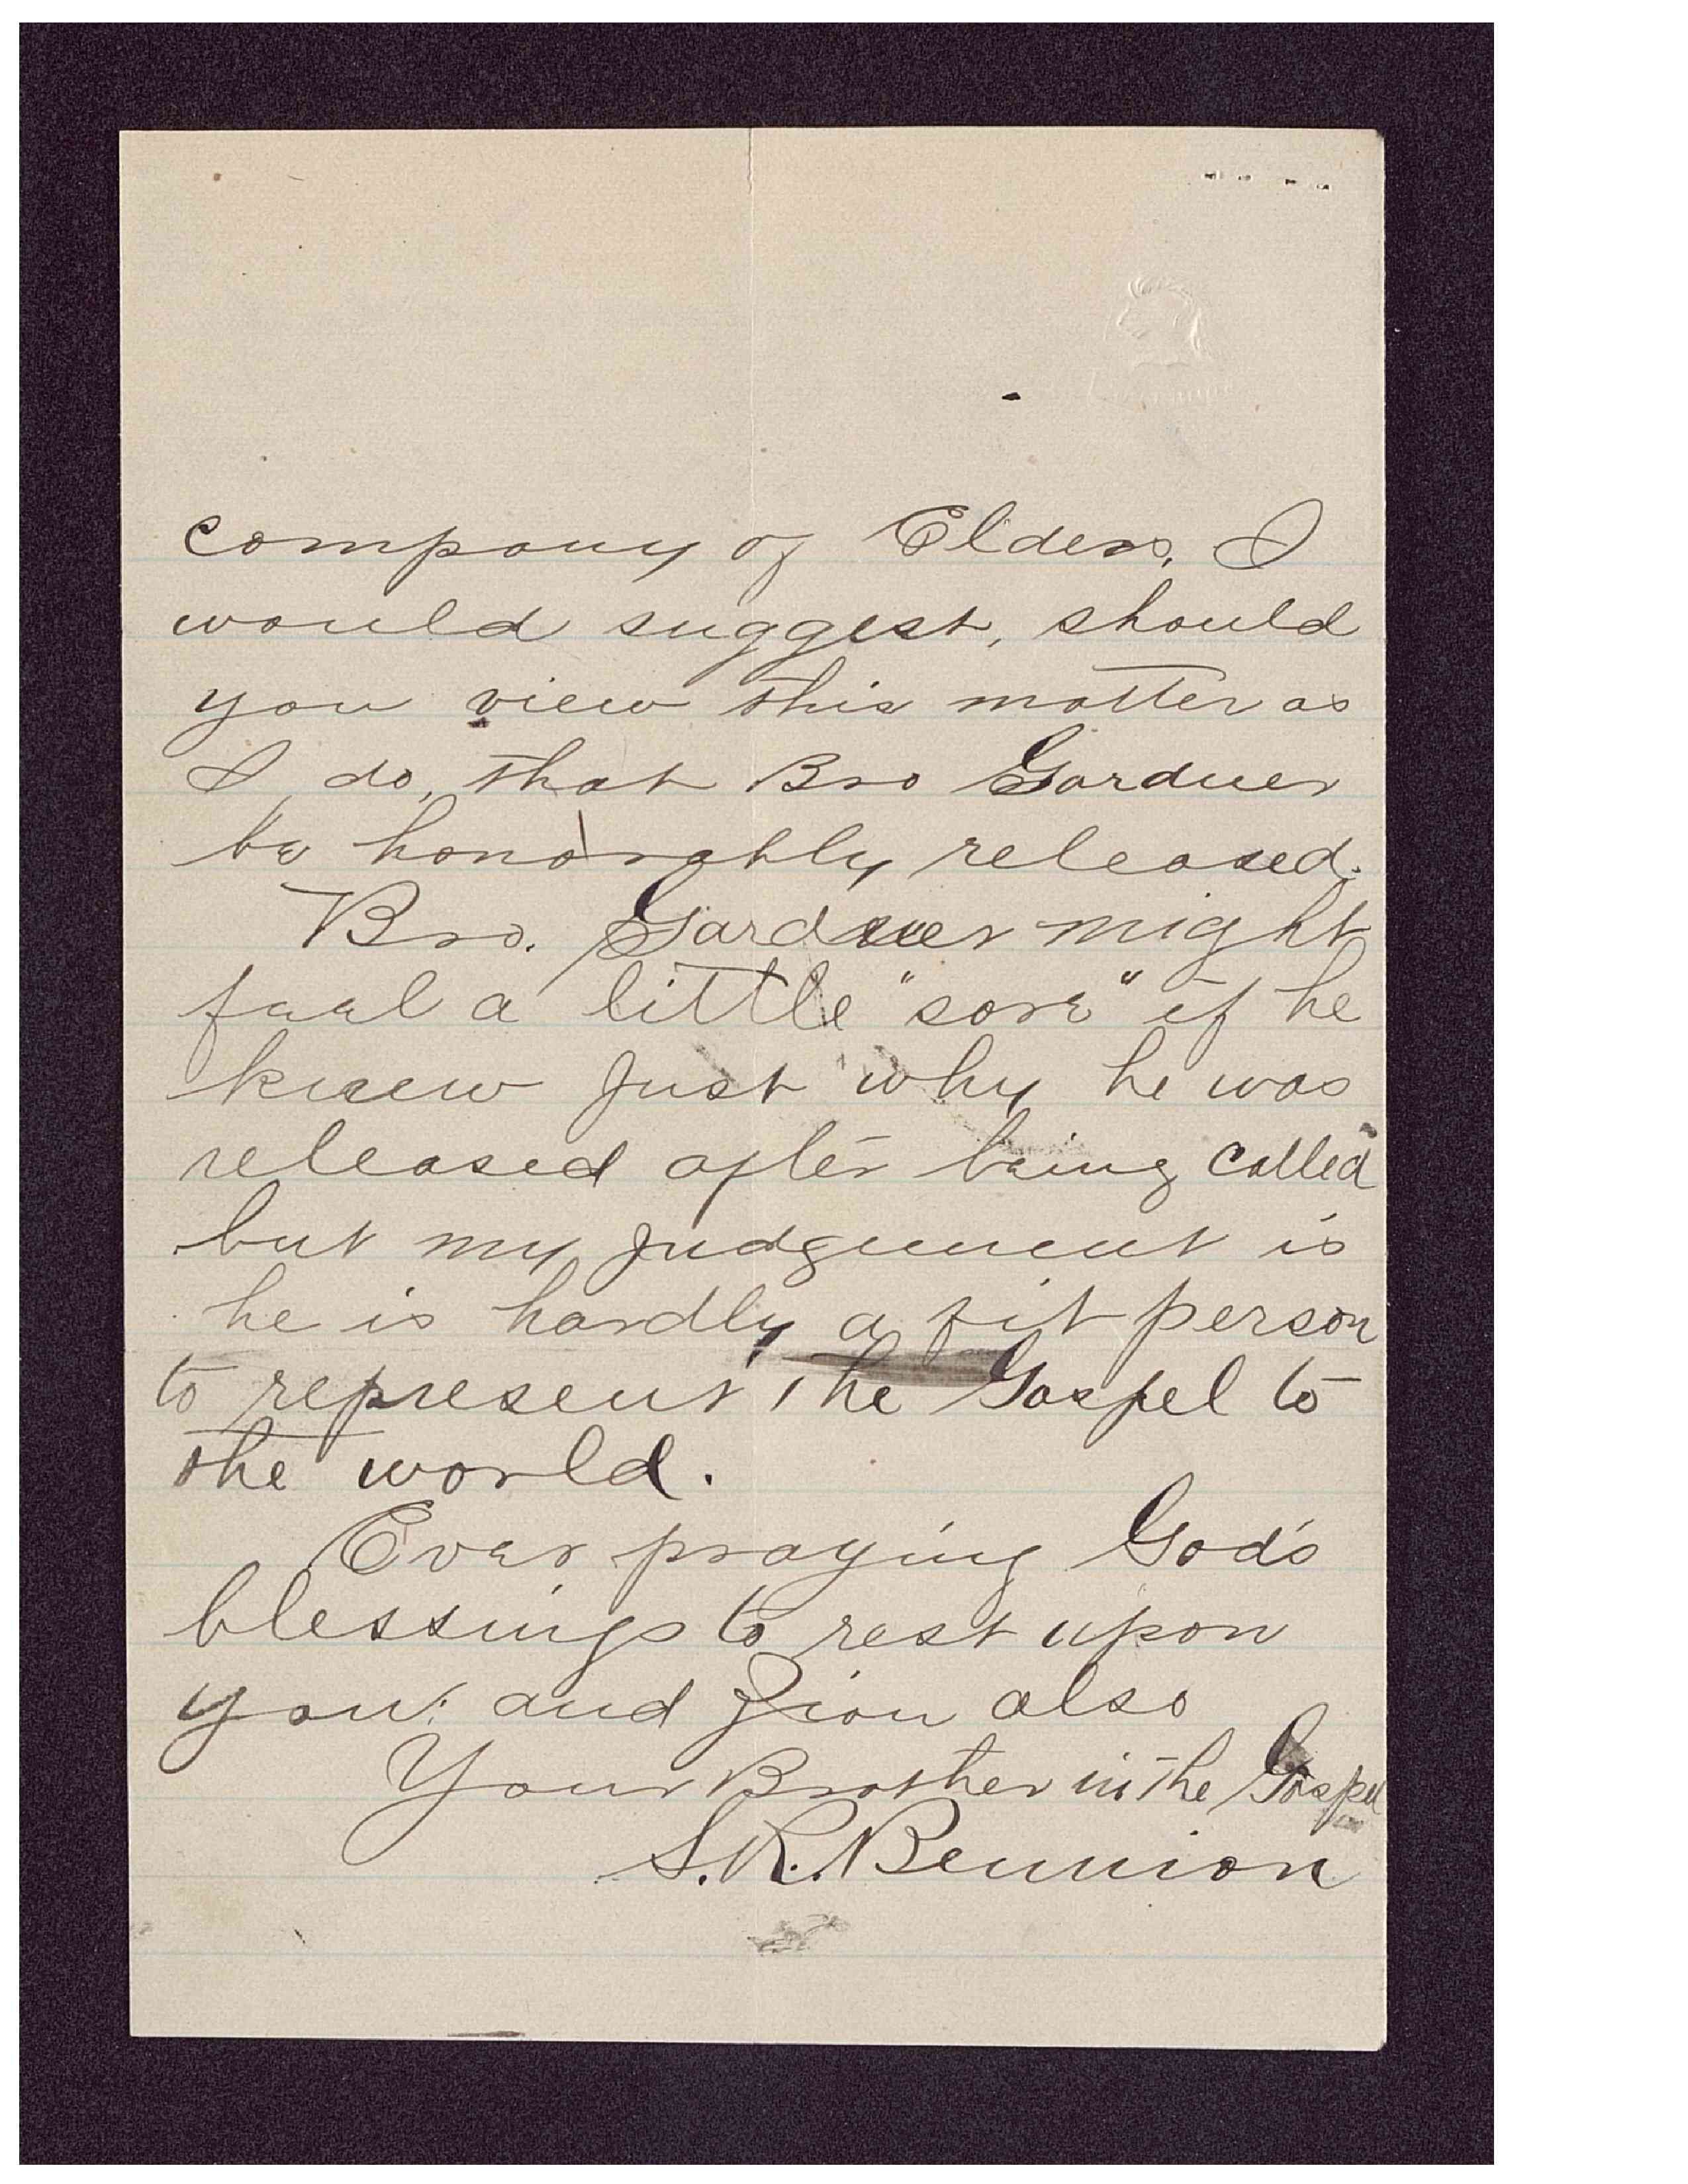 company of Elders, I
would suggest, should
you view this matter as
I do, that Bro Gardner
be honorably released.
Bro. Gardner might
feel a little "sore" if he
knew just why he was
released after being called
but my judgement is
he is hardly a fit person
to represent the Gospel to
the world.
Ever praying God's
blessings to rest upon
you: and Zion also
Your Brother in the Gospel
S. R. Bennion